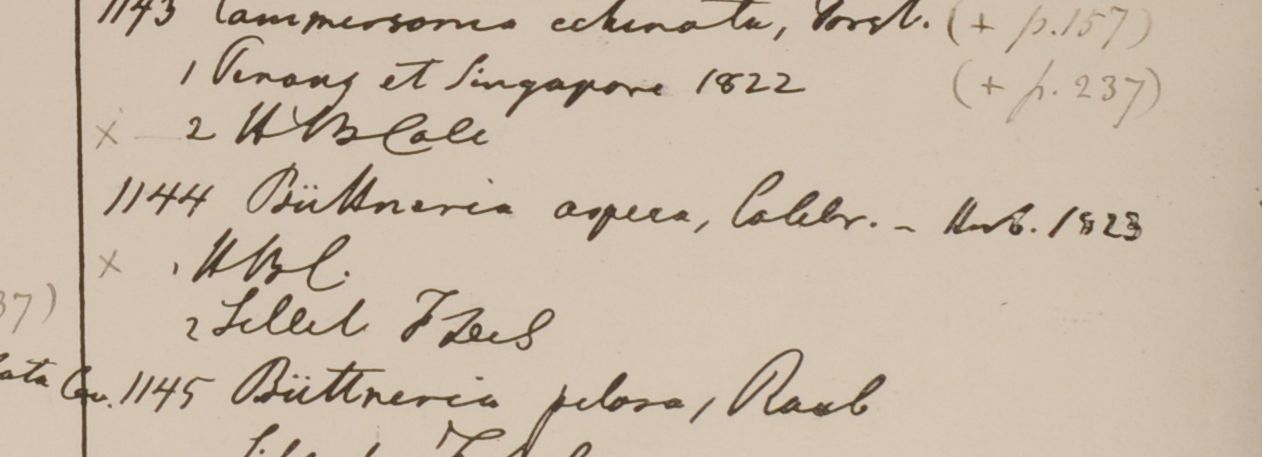 1143 Commersonia echinata, Forst. (+ p.157)
1 Penang et Singapore 1822 (+ p. 237)
x 2 HB Calc
1144 Büttneria aspera, Colebr. - Herb. 1823
x 1 HBC.
2 Sillet F
37)
ata Cav. 1145 Büttneria pilosa, Roxb